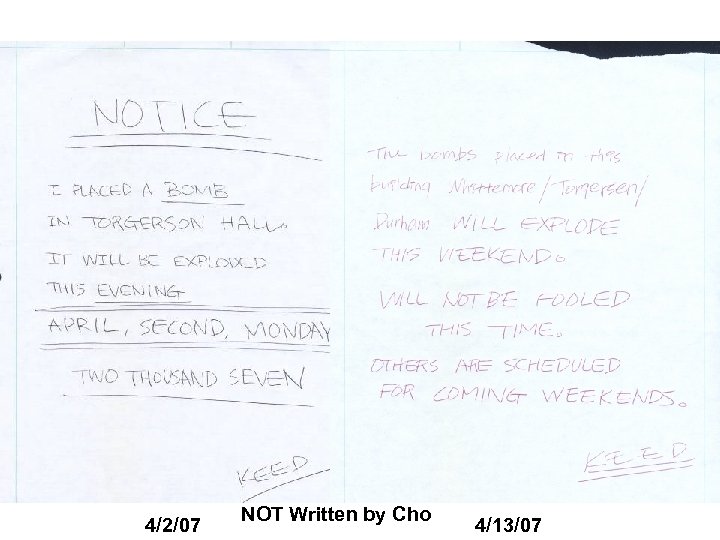 NOTICE
I PLACED A BOMB
IN TORGERSON HALL.
IT WILL BE EXPLODED
THIS EVENING
APRIL, SECOND, MONDAY
TWO THOUSAND SEVEN
KEED
The bombs placed in this
building Whittemore/Torgersen/
Durham WILL EXPLODE
THIS WEEKEND.
WILL NOT BE FOOLED
THIS TIME.
OTHERS ARE SCHEDULED
FOR COMING WEEKENDS.
KEED
4/2/07
NOT Written by Cho
4/13/07